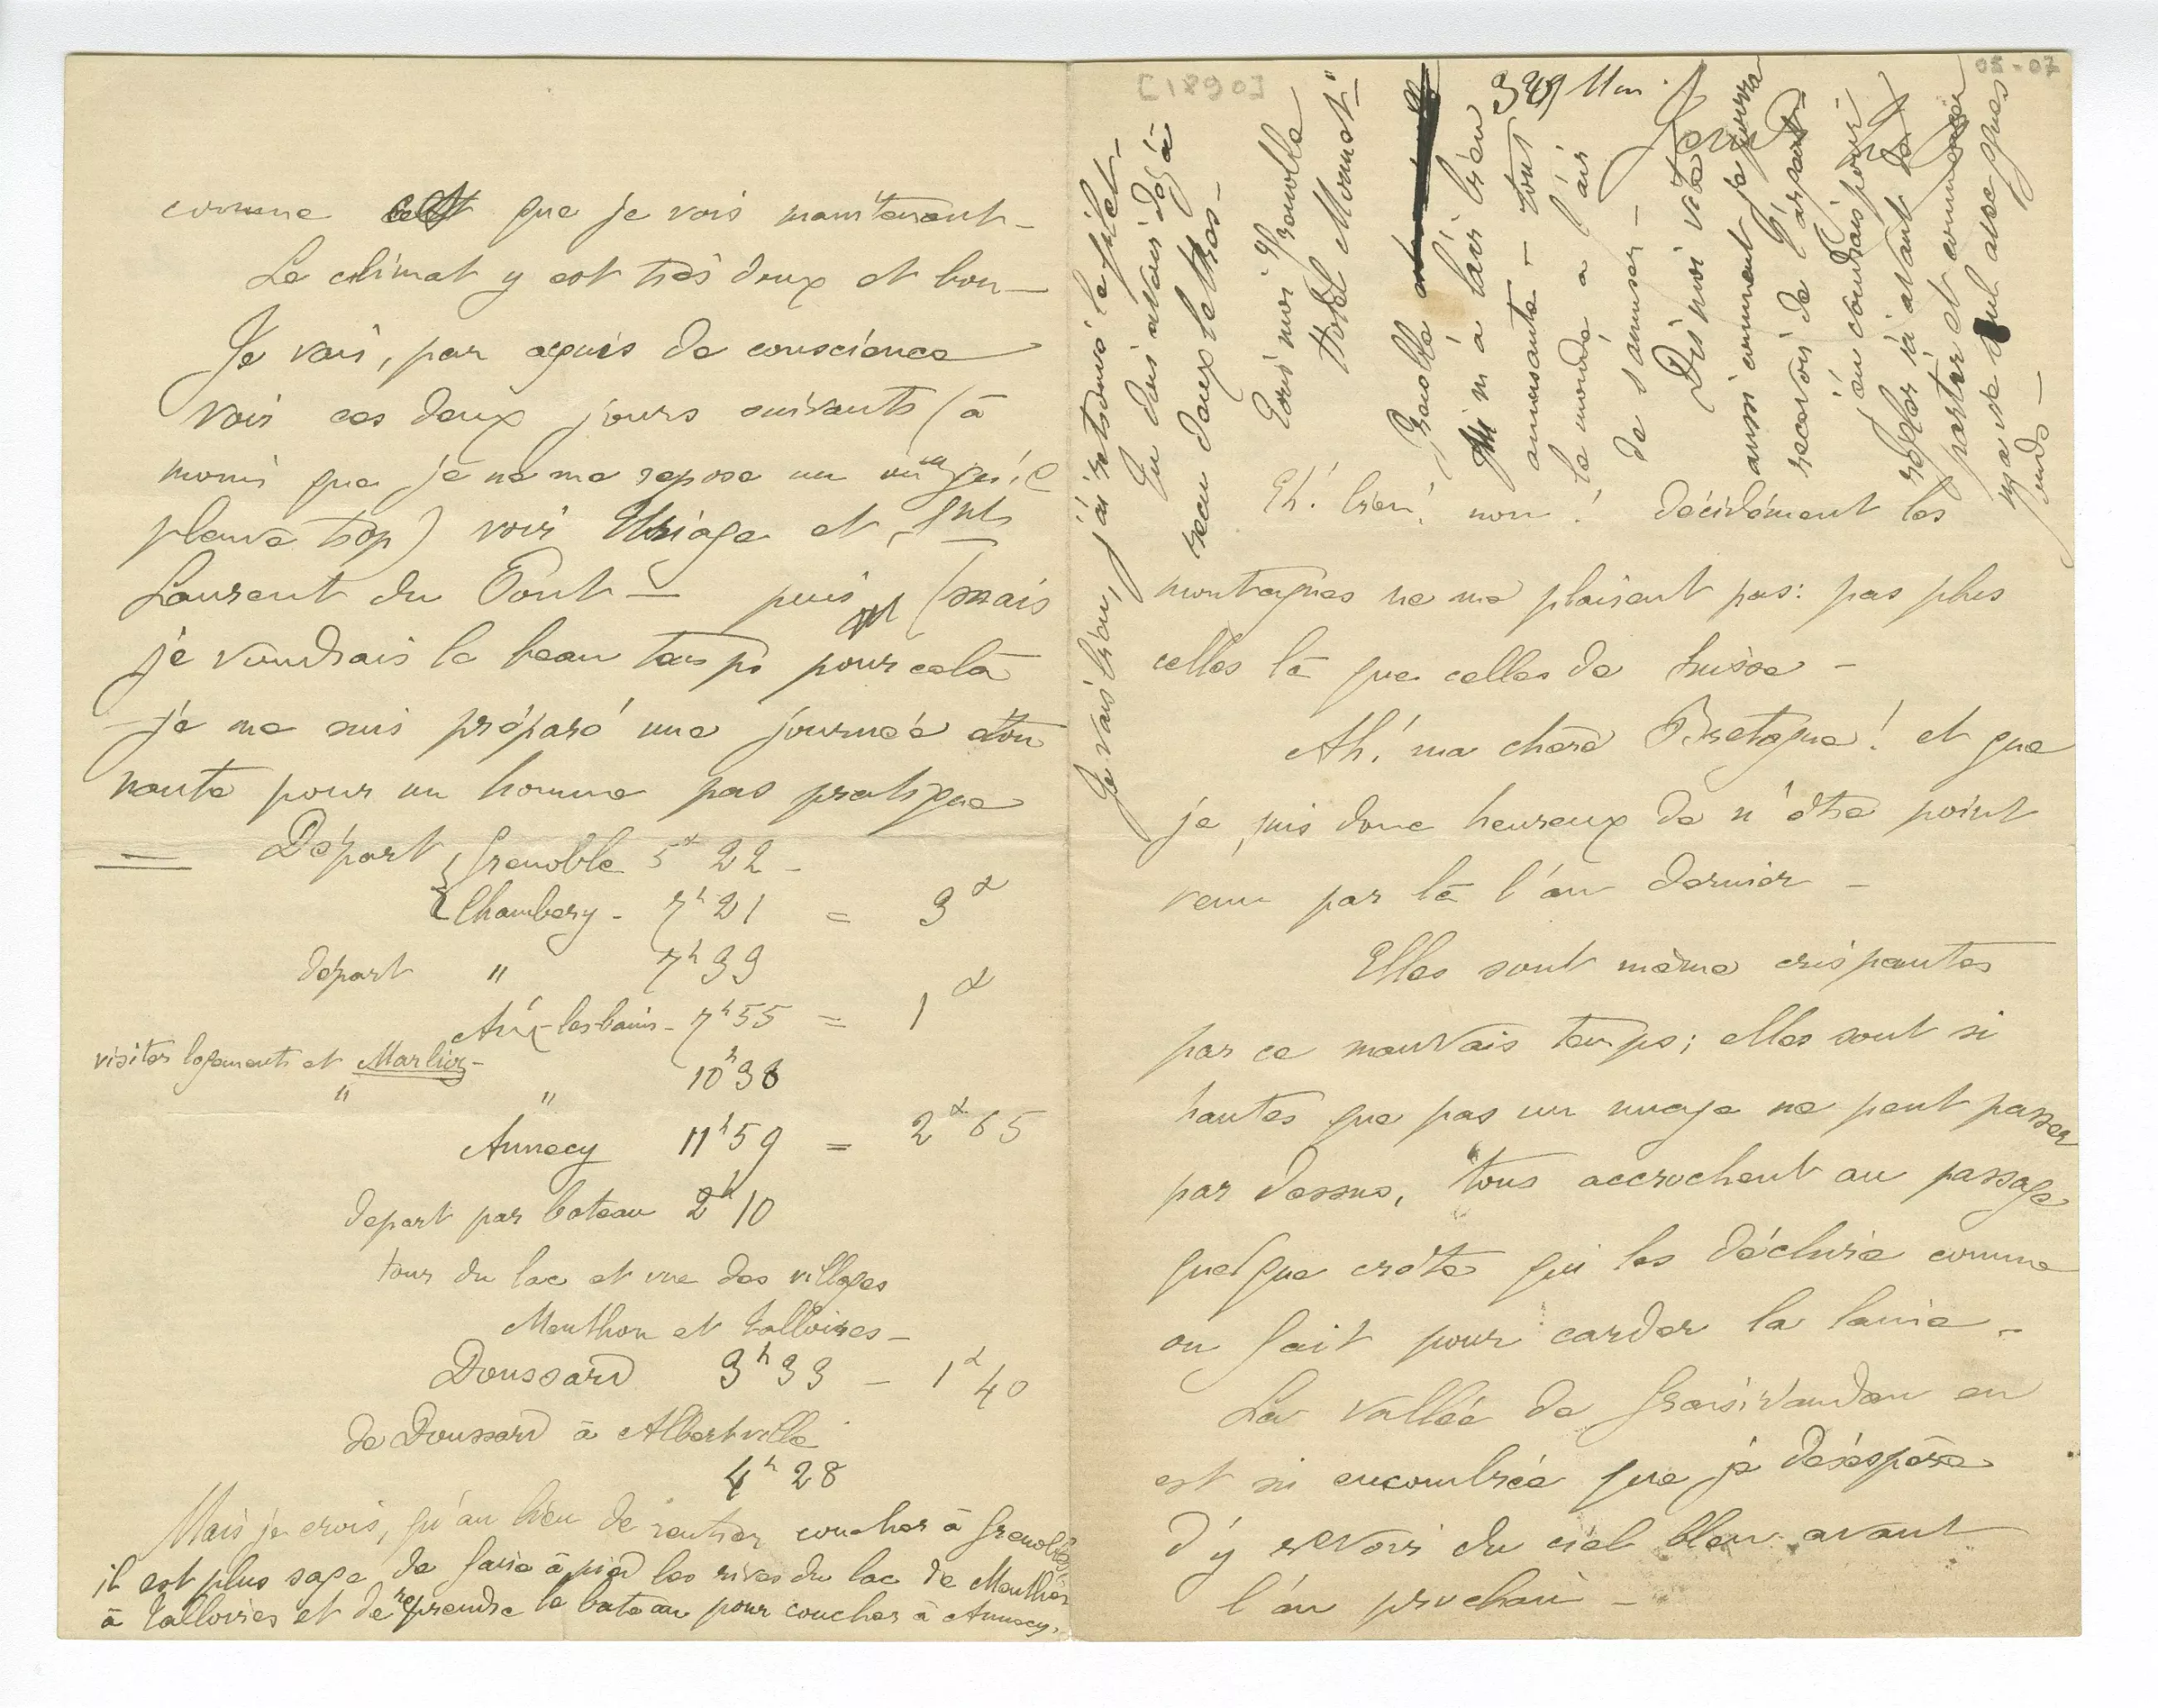 comme que je vois maintenant –
Le climat y est très doux et bon –
Je vais, par acquis de conscience
voir ces deux jours suivants (à
moins que je ne me repose un ou
pleuve trop) voir Uriage et St
Laurent du Pont – puis (mais
je voudrais le beau temps pour cela
je me suis préparé une journée éton
nante pour un homme pas pratique
Départ Grenoble 5h 22 –
Chambery – 7h 21 = 3f
départ " 7h 39
Aix-les bains – 7h 55 = 1f
visiter logements et Marlioz –
" " 10h 38
Annecy 11h 59 = 2f 65
départ par bateau 2h 10
tour du lac et vue des villages
Menthon et Talloires –
Doussard 3h 33 – 1f 40
de Doussard à Albertville
4h 28
Mais je crois, qu'au lieu de rentrer coucher à Grenoble,
il est plus sage de faire à pied les rives du lac de Menthon
à Talloires et de reprendre le bateau pour coucher à Annecy.
[1890]
05-07
Je vais bien, j'ai retrouvé le filet –
Tu dois avoir déjà
reçu deux lettres –
Ecris moi Grenoble
Hotel Monnet" –
Grenoble
m'a l'air bien
amusante – tout
le monde a l'air
de s'amuser –
Dis moi vite
aussi comment je pourrai
recevoir de l'argent
j'en voudrais pour
régler ici avant de
partir et
Eh! bien! non! décidément les
montagnes ne me plaisent pas: pas plus
celles là que celles de Suisse –
Ah! ma chère Bretagne! et que
je suis donc heureux de n'être point
venu par là l'an dernier –
Elles sont même crispantes
par ce mauvais temps; elles sont si
hautes que pas un nuage ne peut passer
par dessus, tous accrochent au passage
quelque crête qui les déchire comme
on fait pour carder la laine –
La vallée de Graisivaudan en
est si encombrée que je désespère
d'y revoir du ciel bleu avant
l'an prochain –